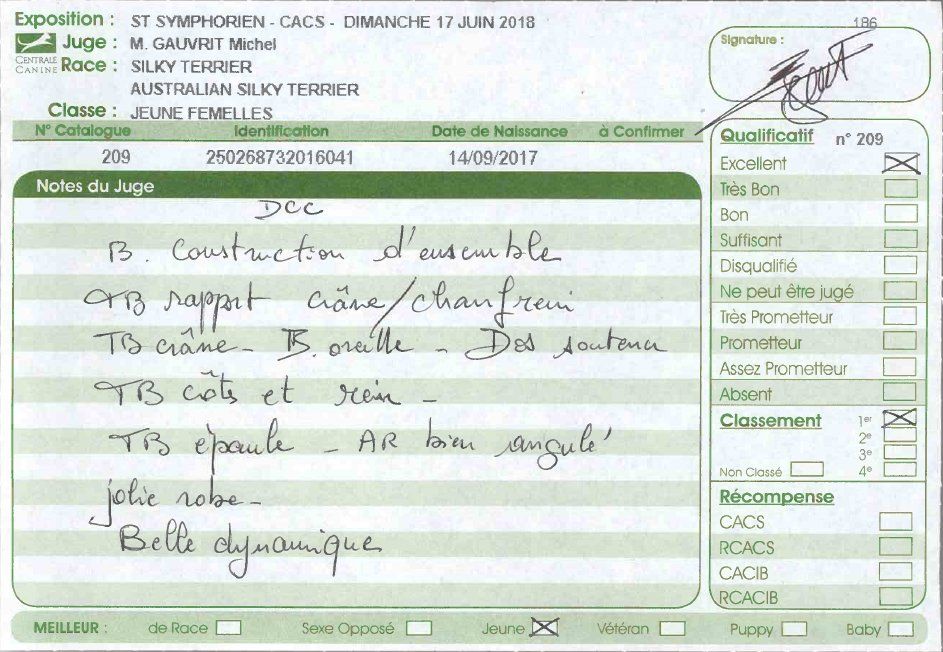 186
Exposition : ST SYMPHORIEN - CACS - DIMANCHE 17 JUIN 2018
Juge : M. GAUVRIT Michel
CENTRALE CANINE
Race : SILKY TERRIER
AUSTRALIAN SILKY TERRIER
Classe : JEUNE FEMELLES
Signature :
N° Catalogue Identification Date de Naissance à Confirmer
209 250268732016041 14/09/2017
Notes du Juge
DCC
B. Construction d'ensemble
TB rapport crâne/chanfrein
TB crâne - B. oreille - Dos soutenu
TB côts et rein -
TB épaule - AR bien angulé
jolie robe -
Belle dynamique
Qualificatif n° 209
Excellent
Très Bon
Bon
Suffisant
Disqualifié
Ne peut être jugé
Très Prometteur
Prometteur
Assez Prometteur
Absent
Classement 1er
2e
3e
Non Classé 4e
Récompense
CACS
RCACS
CACIB
RCACIB
MEILLEUR : de Race Sexe Opposé Jeune Vétéran Puppy Baby